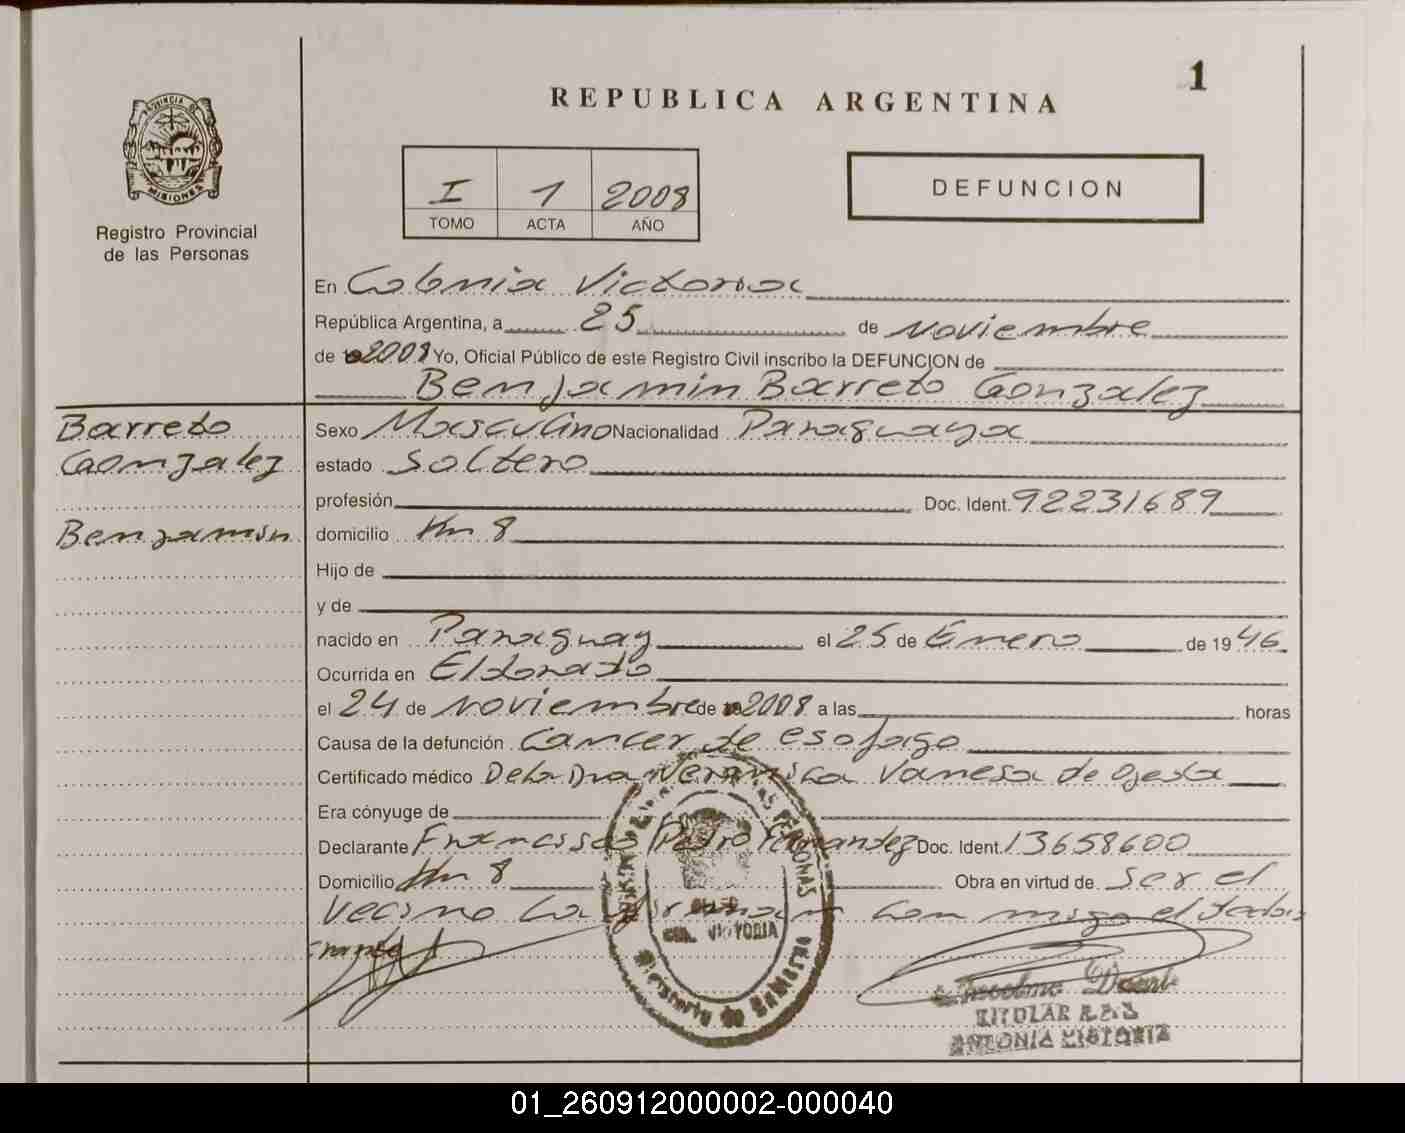 1
REPUBLICA ARGENTINA
PROVINCIA DE
MISIONES
Registro Provincial
de las Personas
I 1 2008
TOMO ACTA AÑO
DEFUNCION
En Colonia Victoria
República Argentina, a 25 de Noviembre
de 2008 Yo, Oficial Público de este Registro Civil inscribo la DEFUNCION de
Benjamin Barreto Gonzalez
Barreto
Gonzalez
Benjamin
Sexo Masculino Nacionalidad Paraguaya
estado Soltero
profesión Doc. Ident. 92231689
domicilio Km 8
Hijo de
y de
nacido en Paraguay el 25 de Enero de 1946
Ocurrida en Eldorado
el 24 de Noviembre de 2008 a las horas
Causa de la defunción Cancer de esofago
Certificado médico De la Dra Veronica Vanesa de Ojeda
Era cónyuge de
Declarante Francisco Pedro Fernandez Doc. Ident. 13658600
Domicilio Km 8 Obra en virtud de ser el
Vecino con migo el
PERSONAS
COL. VICTORIA
Ministerio de Gobierno
TITULAR
01_260912000002-000040